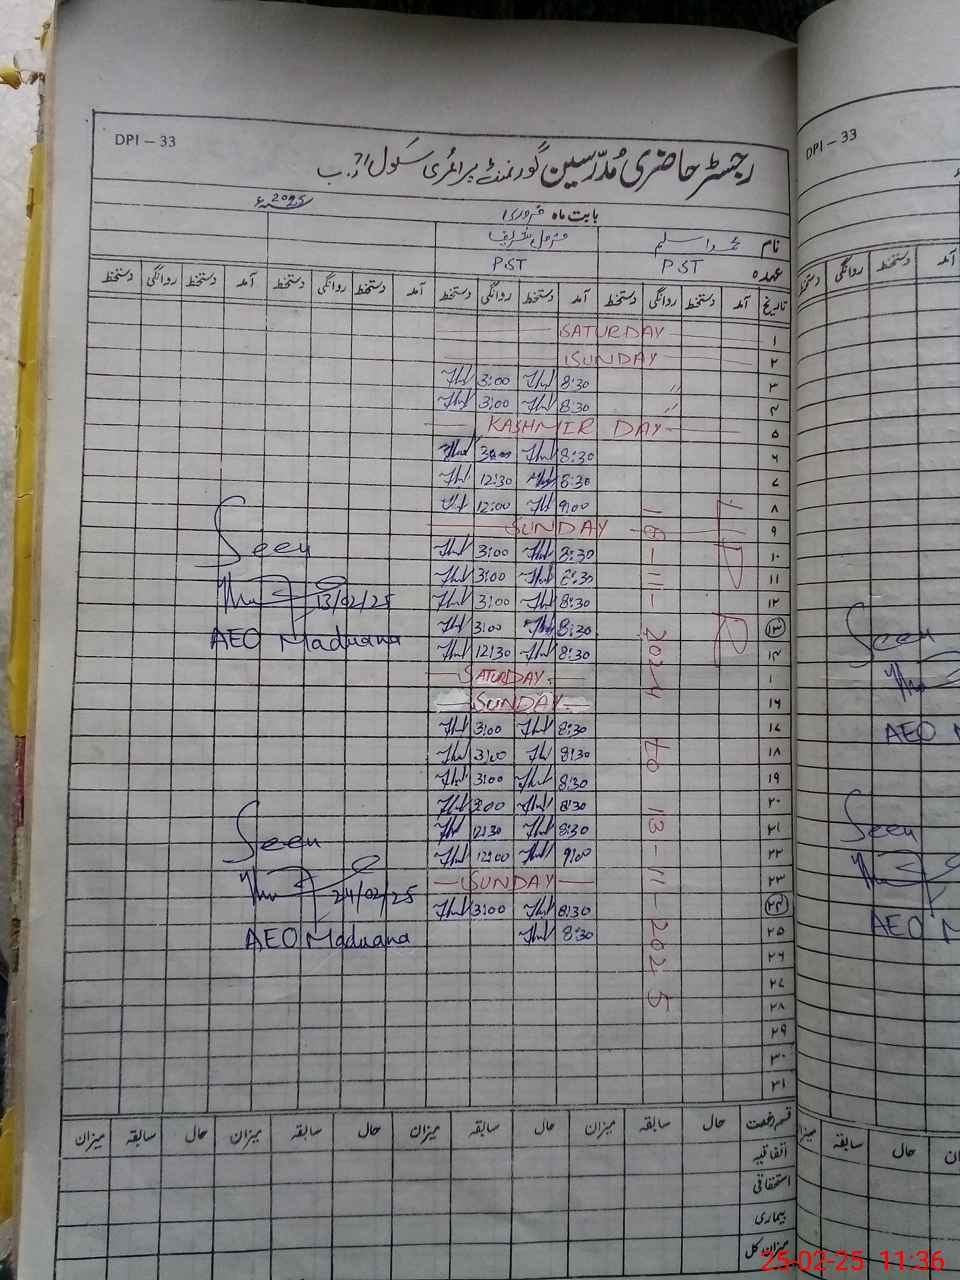 DPI – 33
رجسٹر حاضری مُدرّسین گورنمنٹ پرائمری سکول
بابت ماہ فروری 2025ء
نام
عہدہ P.ST P.ST
تاریخ آمد دستخط روانگی دستخط آمد دستخط روانگی دستخط آمد دستخط روانگی دستخط آمد دستخط روانگی دستخط
۱ SATURDAY
۲ SUNDAY
۳ 8:30 3:00
۴ 8:30 3:00
۵ KASHMIR DAY
۶ 8:30 3:00
۷ 8:30 12:30
۸ 9:00 12:00
۹ SUNDAY
۱۰ 8:30 3:00
۱۱ 8:30 3:00
۱۲ 8:30 3:00
۱۳ 8:30 3:00
۱۴ 8:30 12:30
۱ SATURDAY
۱۶ SUNDAY
۱۷ 8:30 3:00
۱۸ 8:30 3:00
۱۹ 8:30 3:00
۲۰ 8:30 3:00
۲۱ 8:30 12:30
۲۲ 9:00 12:00
۲۳ SUNDAY
۲۴ 8:30 3:00
۲۵ 8:30
۲۶
۲۷
۲۸
۲۹
۳۰
۳۱
18-11-2024 to 13-11-2025
Seen
13/02/25
AEO Maduana
Seen
24/02/25
AEO Maduana
قسم رخصت حال سابقہ میزان حال سابقہ میزان حال سابقہ میزان حال سابقہ میزان
اتفاقیہ
استحقاقی
بیماری
میزان کل
DPI – 33
آمد دستخط روانگی دستخط
Seen
AEO M
Seen
AEO M
حال سابقہ
25-02-25 11:36